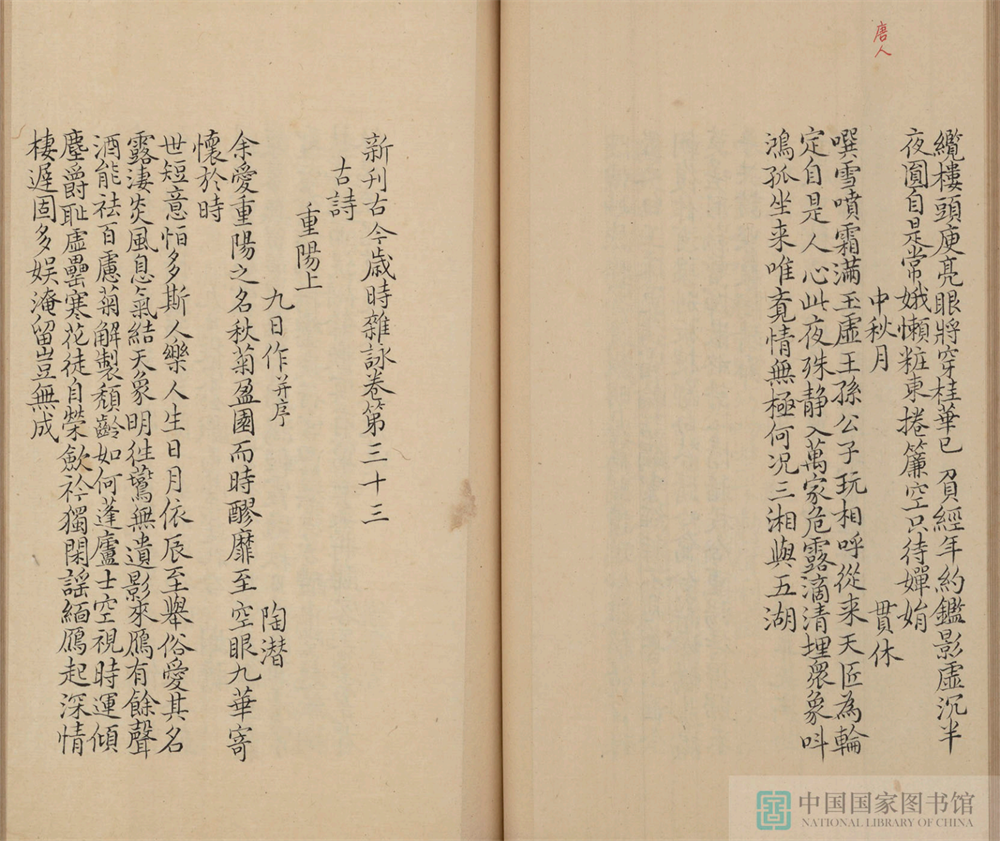 唐人
纜樓頭庾亮眼將穿桂華已負經年約鑑影虛沉半
夜圓自是常娥懶粧束捲簾空只待嬋娟
中秋月 貫休
噀雪噴霜滿玉虛王孫公子玩相呼從来天匠為輪
定自是人心此夜殊静入萬家危露滴清埋眾象叫
鴻孤坐来唯覔情無極何况三湘與五湖
新刊古今歲時雜詠卷第三十三
古詩
重陽上
九日作并序 陶潜
余愛重陽之名秋菊盈園而時醪靡至空眼九華寄
懷於時
世短意怕多斯人樂人生日月依辰至舉俗愛其名
露淒炎風息氣結天象明徃鷰無遺影來鴈有餘聲
酒能祛百慮菊解製頹齡如何蓬廬士空視時運傾
塵爵耻虛罍寒花徒自榮歛衿獨閑謡緬鴈起深情
棲遲固多娱淹留豈無成
中国国家图书馆
NATIONAL LIBRARY OF CHINA